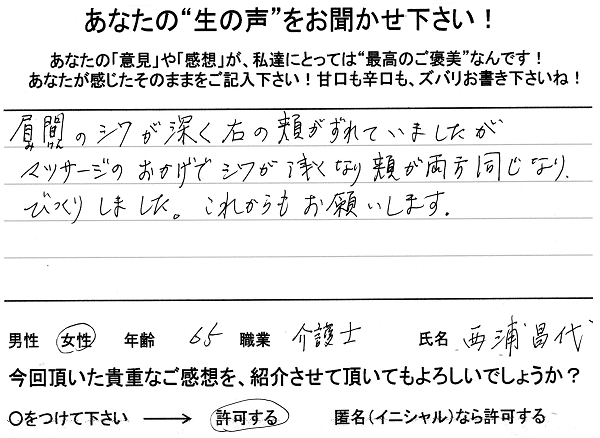 あなたの“生の声”をお聞かせ下さい！
あなたの「意見」や「感想」が、私達にとっては“最高のご褒美”なんです！
あなたが感じたそのままをご記入下さい！甘口も辛口も、ズバリお書き下さいね！
眉間のシワが深く右の頬がずれていましたが
みけん
マッサージのおかげでシワが浅くなり頬が両方同じなり、
びっくりしました。これからもお願いします。
男性 女性 年齢 65 職業 介護士 氏名 西浦昌代
今回頂いた貴重なご感想を、紹介させて頂いてもよろしいでしょうか？
〇をつけて下さい ―→ 許可する 匿名(イニシャル)なら許可する